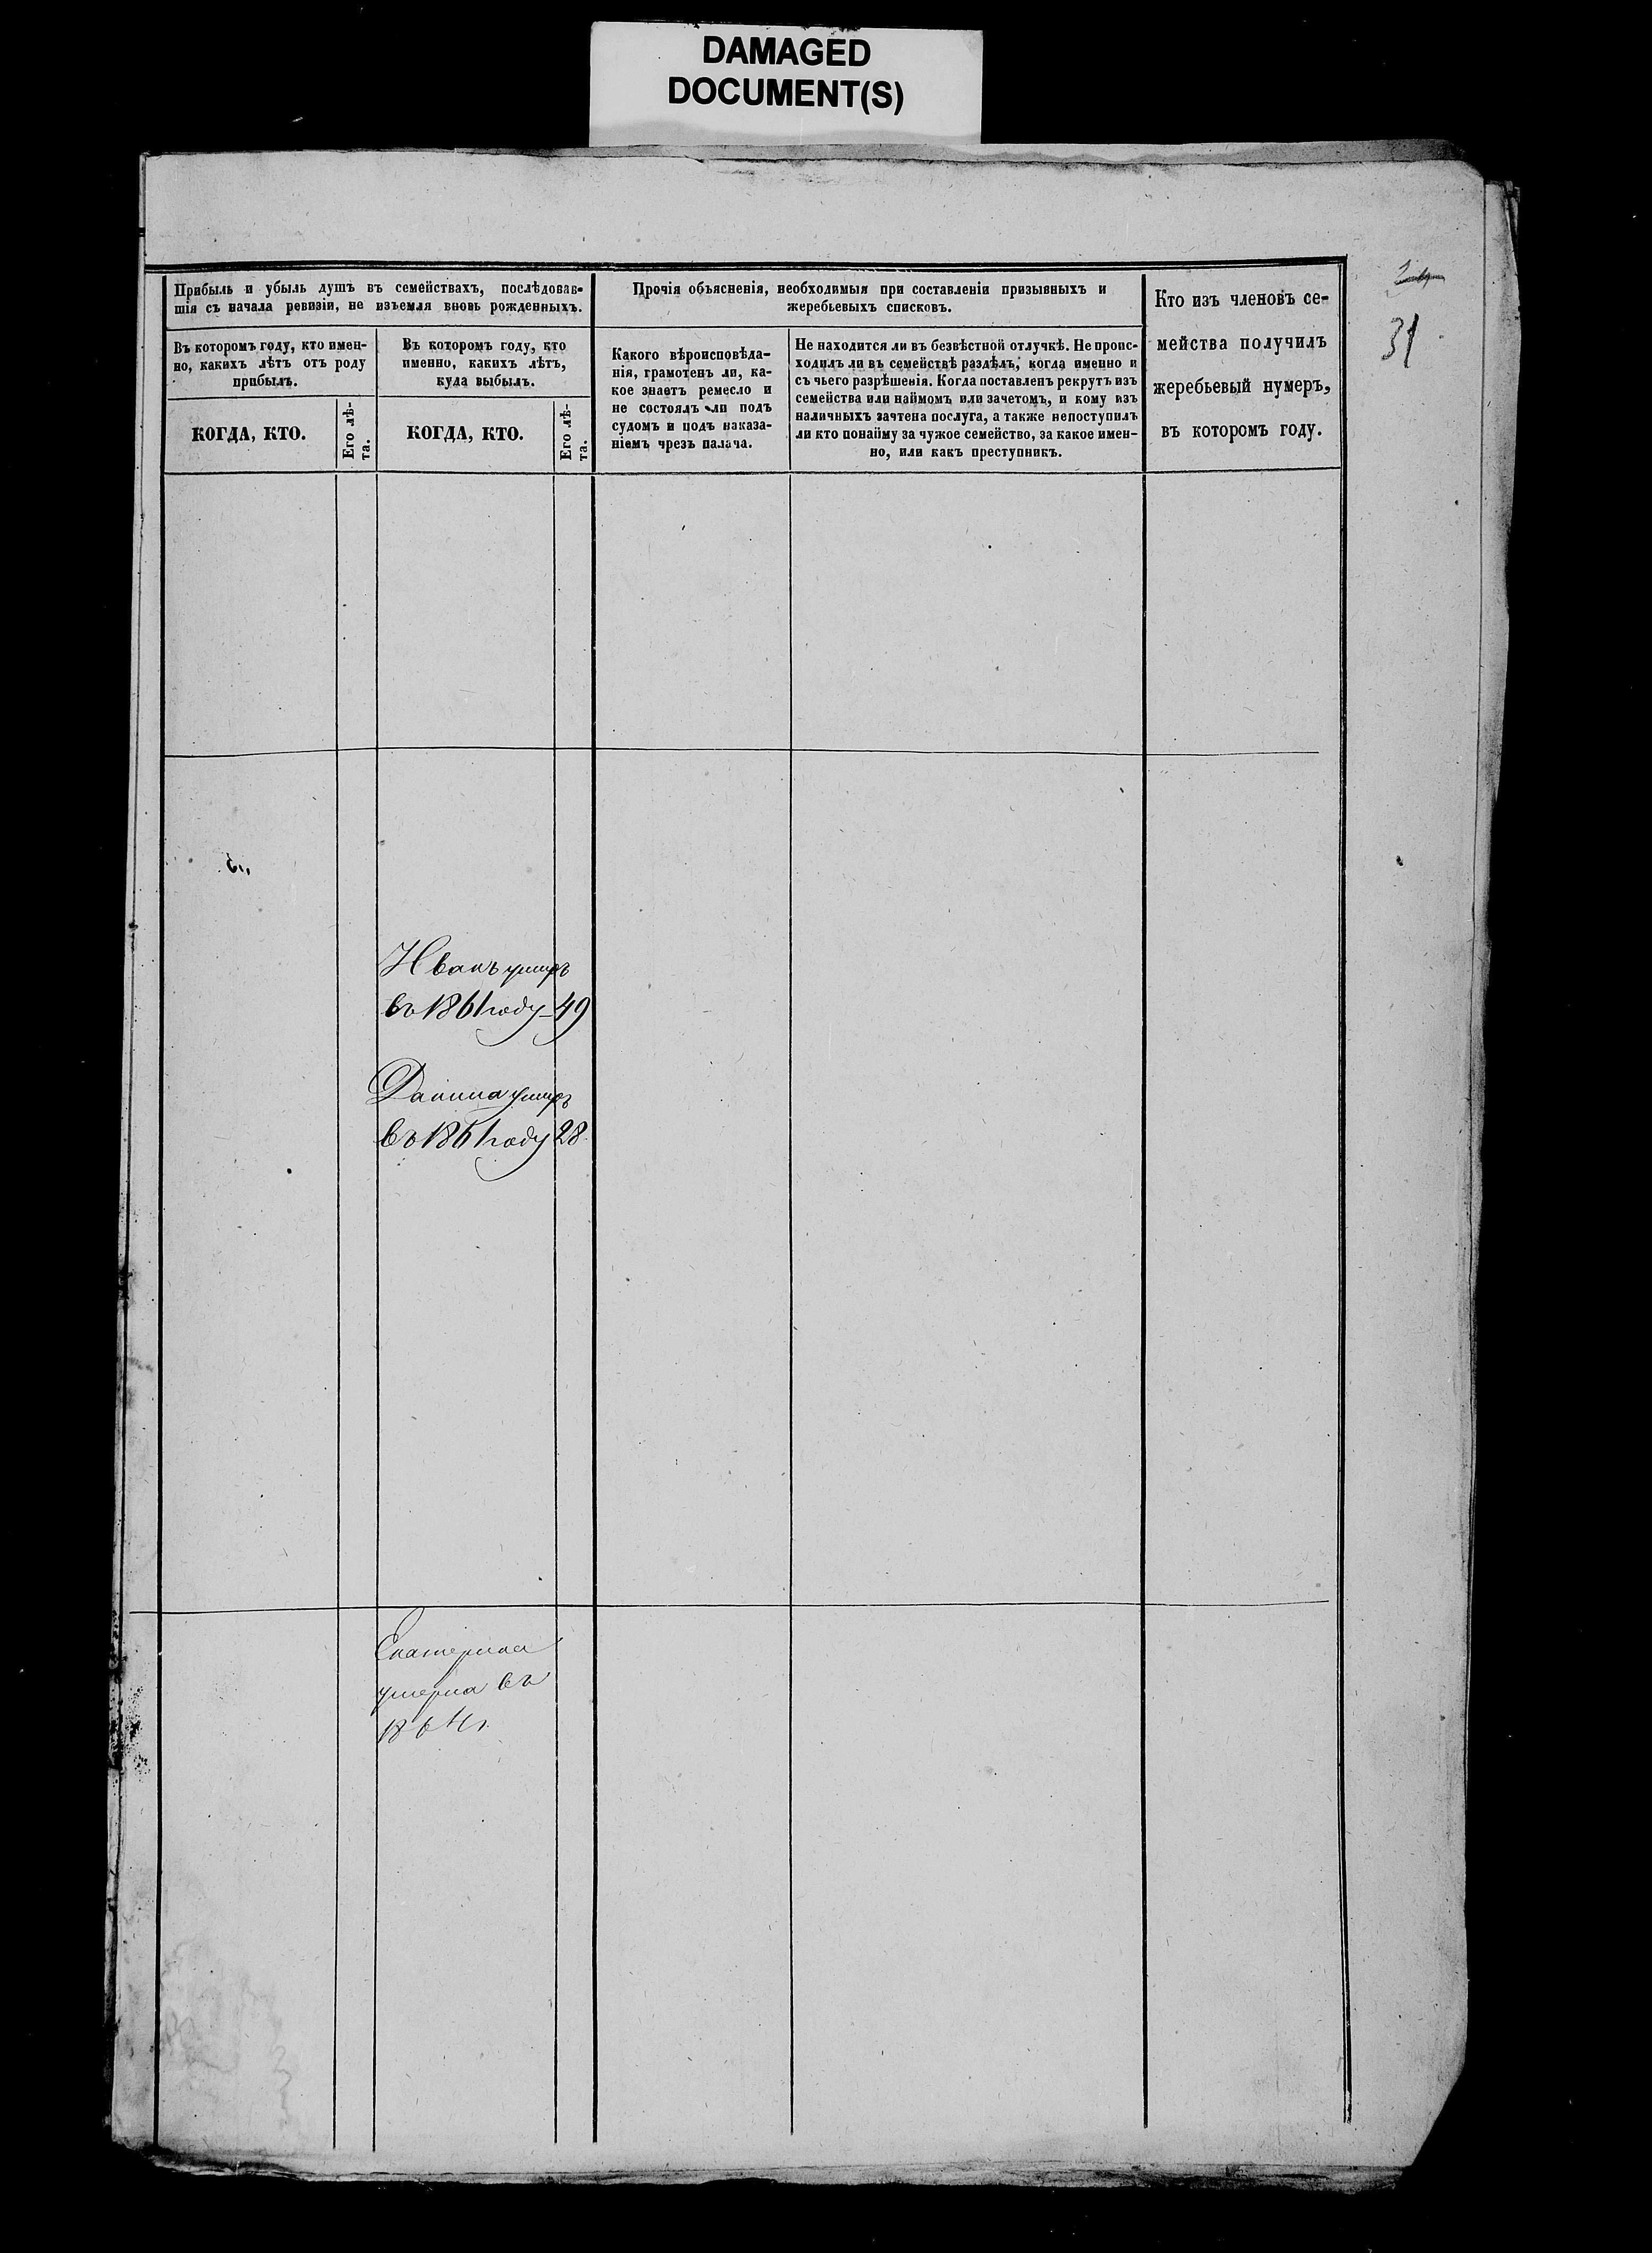 DAMAGED
DOCUMENT(S)
31
Прибыль и убыль душъ въ семействахъ, послѣдовав-
шія съ начала ревизіи, не изъемля вновь рожденныхъ.
Въ которомъ году, кто имен-
но, какихъ лѣтъ отъ роду
прибылъ.
КОГДА, КТО.
Его лѣ-
та.
Въ которомъ году, кто
именно, какихъ лѣтъ,
куда выбылъ.
КОГДА, КТО.
Его лѣ-
та.
Прочія объясненія, необходимыя при составленіи призывныхъ и
жеребьевыхъ списковъ.
Какого вѣроисповѣда-
нія, грамотенъ ли, ка-
кое знаетъ ремесло и
не состоялъ ли подъ
судомъ и подъ наказа-
ніемъ чрезъ палача.
Не находится ли въ безвѣстной отлучкѣ. Не проис-
ходилъ ли въ семействѣ раздѣлъ, когда именно и
съ чьего разрѣшенія. Когда поставленъ рекрутъ изъ
семейства или наймомъ или зачетомъ, и кому изъ
наличныхъ зачтена послуга, а также непоступилъ
ли кто понайму за чужое семейство, за какое имен-
но, или какъ преступникъ.
Кто изъ членовъ се-
мейства получилъ
жеребьевый нумеръ,
въ которомъ году.
Иванъ умеръ
въ 1861 году 49
Данила умеръ
въ 1861 году 28
Екатерина
умерла въ
1864 г.